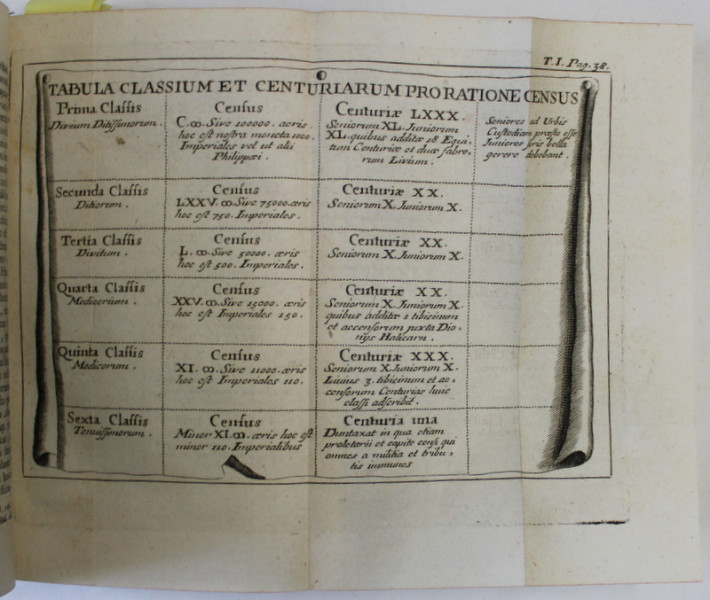 T.I. Pag. 38.
TABULA CLASSIUM ET CENTURIARUM PRO RATIONE CENSUS
Prima Classis
Divium Ditissimorum.
Census
C.ꝏ. Sive 100000. aeris
hoc est nostra moneta 1000.
Imperiales vel ut alii
Philippæi.
Centuriæ LXXX.
Seniorum XL. Juniorum
XL. quibus additæ 18 Equi,
tum Centuriæ et duæ fabro,
rum Livium.
Seniores ad Urbis
Custodiam præsto esse
Juniores foris bella
gerere debebant.
Secunda Classis
Ditiorum.
Census
LXXV.ꝏ. Sive 75000. æris
hoc est 750. Imperiales.
Centuriæ XX.
Seniorum X. Juniorum X.
Tertia Classis
Divitum.
Census
L.ꝏ. Sive 50000. æris
hoc est 500. Imperiales.
Centuriæ XX.
Seniorum X. Juniorum X.
Quarta Classis
Mediocrium.
Census
XXV.ꝏ. Sive 25000. æris
hoc est Imperiales 250.
Centuriæ XX.
Seniorum X. Juniorum X.
quibus additæ 2 tibicinum
et accensorum juxta Dio,
nijs Halicarn.
Quinta Classis
Modicorum.
Census
XI.ꝏ. Sive 11000. æris
hoc est Imperiales 110.
Centuriæ XXX.
Seniorum X. Juniorum X.
Livius 3. tibicinum et ac,
censorum Centurias huic
classi adscribit.
Sexta Classis
Tenuissimorum.
Census
Minor XI.ꝏ. æris hoc est
minor 110. Imperialibus
Centuria una
Duntaxat in qua etiam
proletarii et capite censi qui
omnes a militia et tribu,
tis immunes